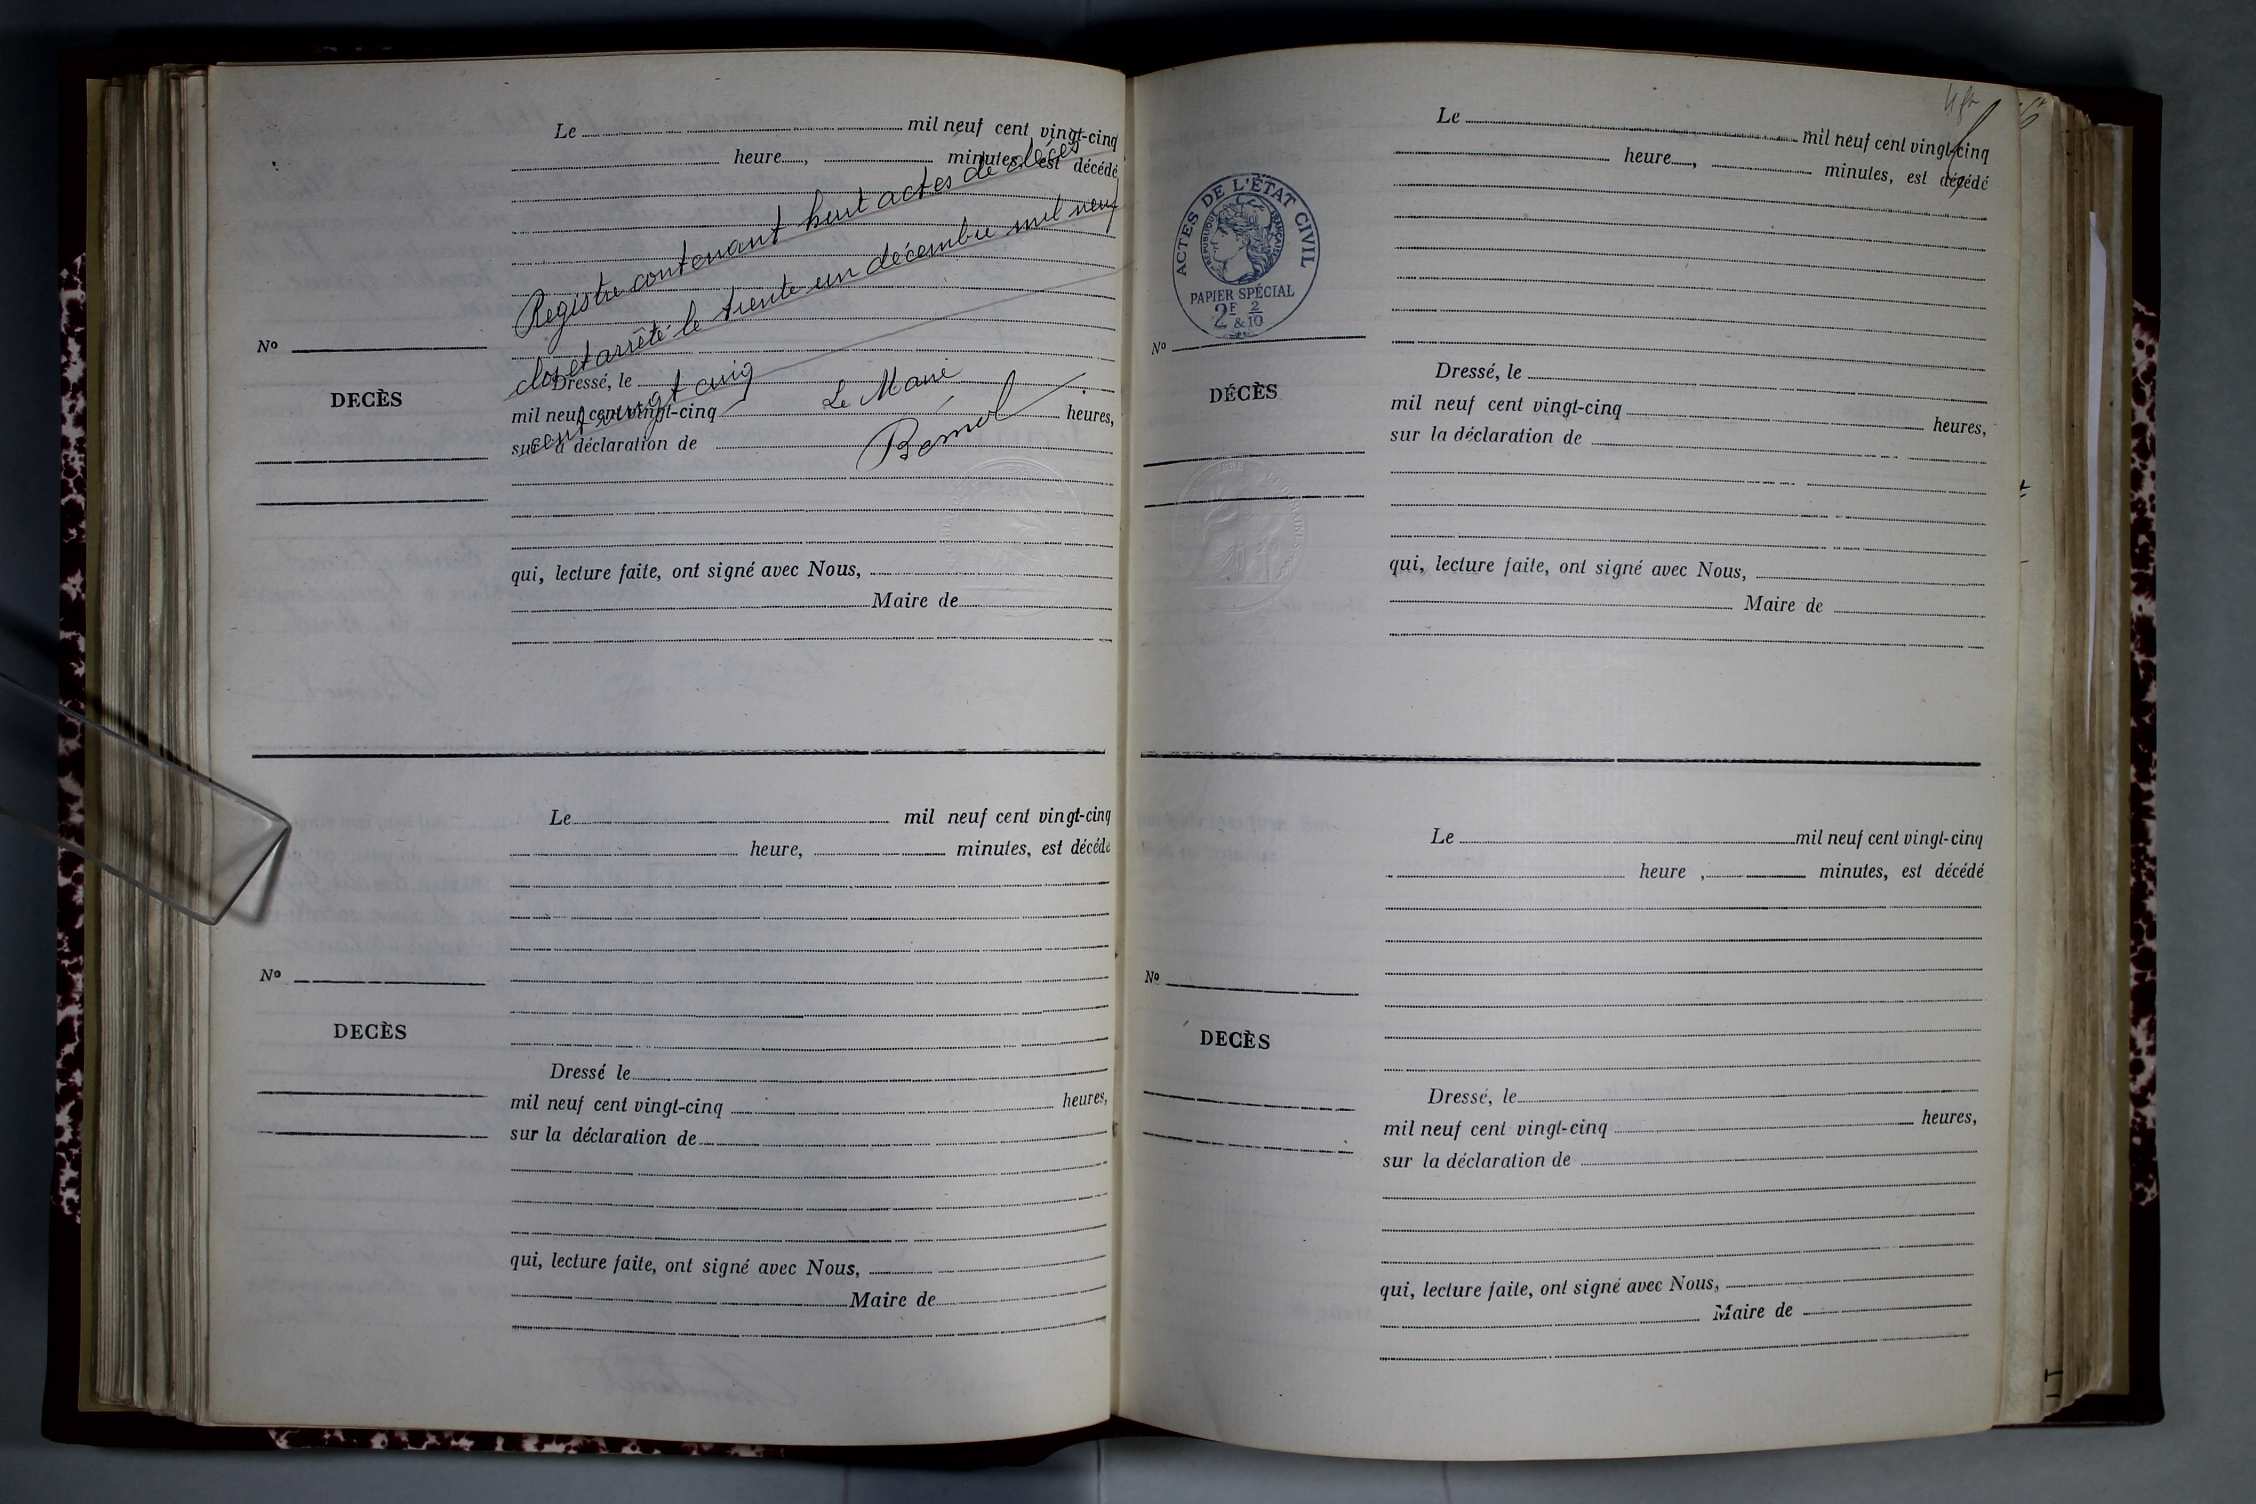 Le mil neuf cent vingt-cinq
heure , minutes, est décédé
Registre contenant huit actes de décès
clos et arrêté le trente un décembre mil neuf
cent vingt cinq
Le Maire
No
DECÈS
Dressé, le
mil neuf cent vingt-cinq heures,
sur la déclaration de
qui, lecture faite, ont signé avec Nous,
Maire de
Le mil neuf cent vingt-cinq
heure, minutes, est décédé
No
DECÈS
Dressé le
mil neuf cent vingt-cinq heures,
sur la déclaration de
qui, lecture faite, ont signé avec Nous,
Maire de
Le mil neuf cent vingt-cinq
heure , minutes, est décédé
ACTES DE L'ÉTAT CIVIL
RÉPUBLIQUE FRANÇAISE
PAPIER SPÉCIAL
2F & 2/10
No
DÉCÈS
Dressé, le
mil neuf cent vingt-cinq heures,
sur la déclaration de
qui, lecture faite, ont signé avec Nous,
Maire de
Le mil neuf cent vingt-cinq
heure , minutes, est décédé
No
DECÈS
Dressé, le
mil neuf cent vingt-cinq heures,
sur la déclaration de
qui, lecture faite, ont signé avec Nous,
Maire de